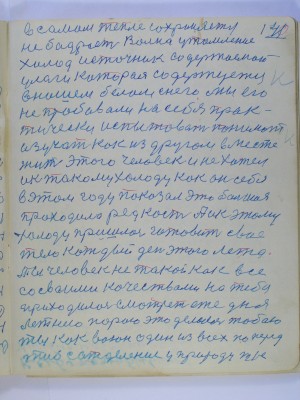 в самом тепле сохраняется
не бодрост Волна утомление
холод источник содержаемой
улаги которая содержуется
в нашем белом снего мы его
не пробовали на себя прак-
тически испытоват понимат
изучат как из другом вместе
жит Этого человек и не хотел
ик такому холоду как он себя
в этом году показал это большая
приходила редкост Так этому
холоду пришлос готовит свае
тело каждый ден этого лета.
Ты человек не такой как все
со своими качествами на тебя
приходилос смотрет еже дная
летнею порою это делалос тобою
ты как воин один из всех поперед
этих сатделение у природу пи